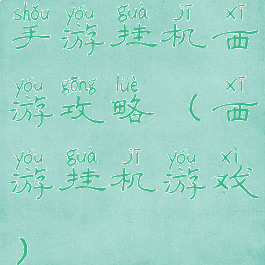 shǒu yóu guà jī xī
手游挂机西
yóu gōng luè xī
游攻略(西
yóu guà jī yóu xì
游挂机游戏
)